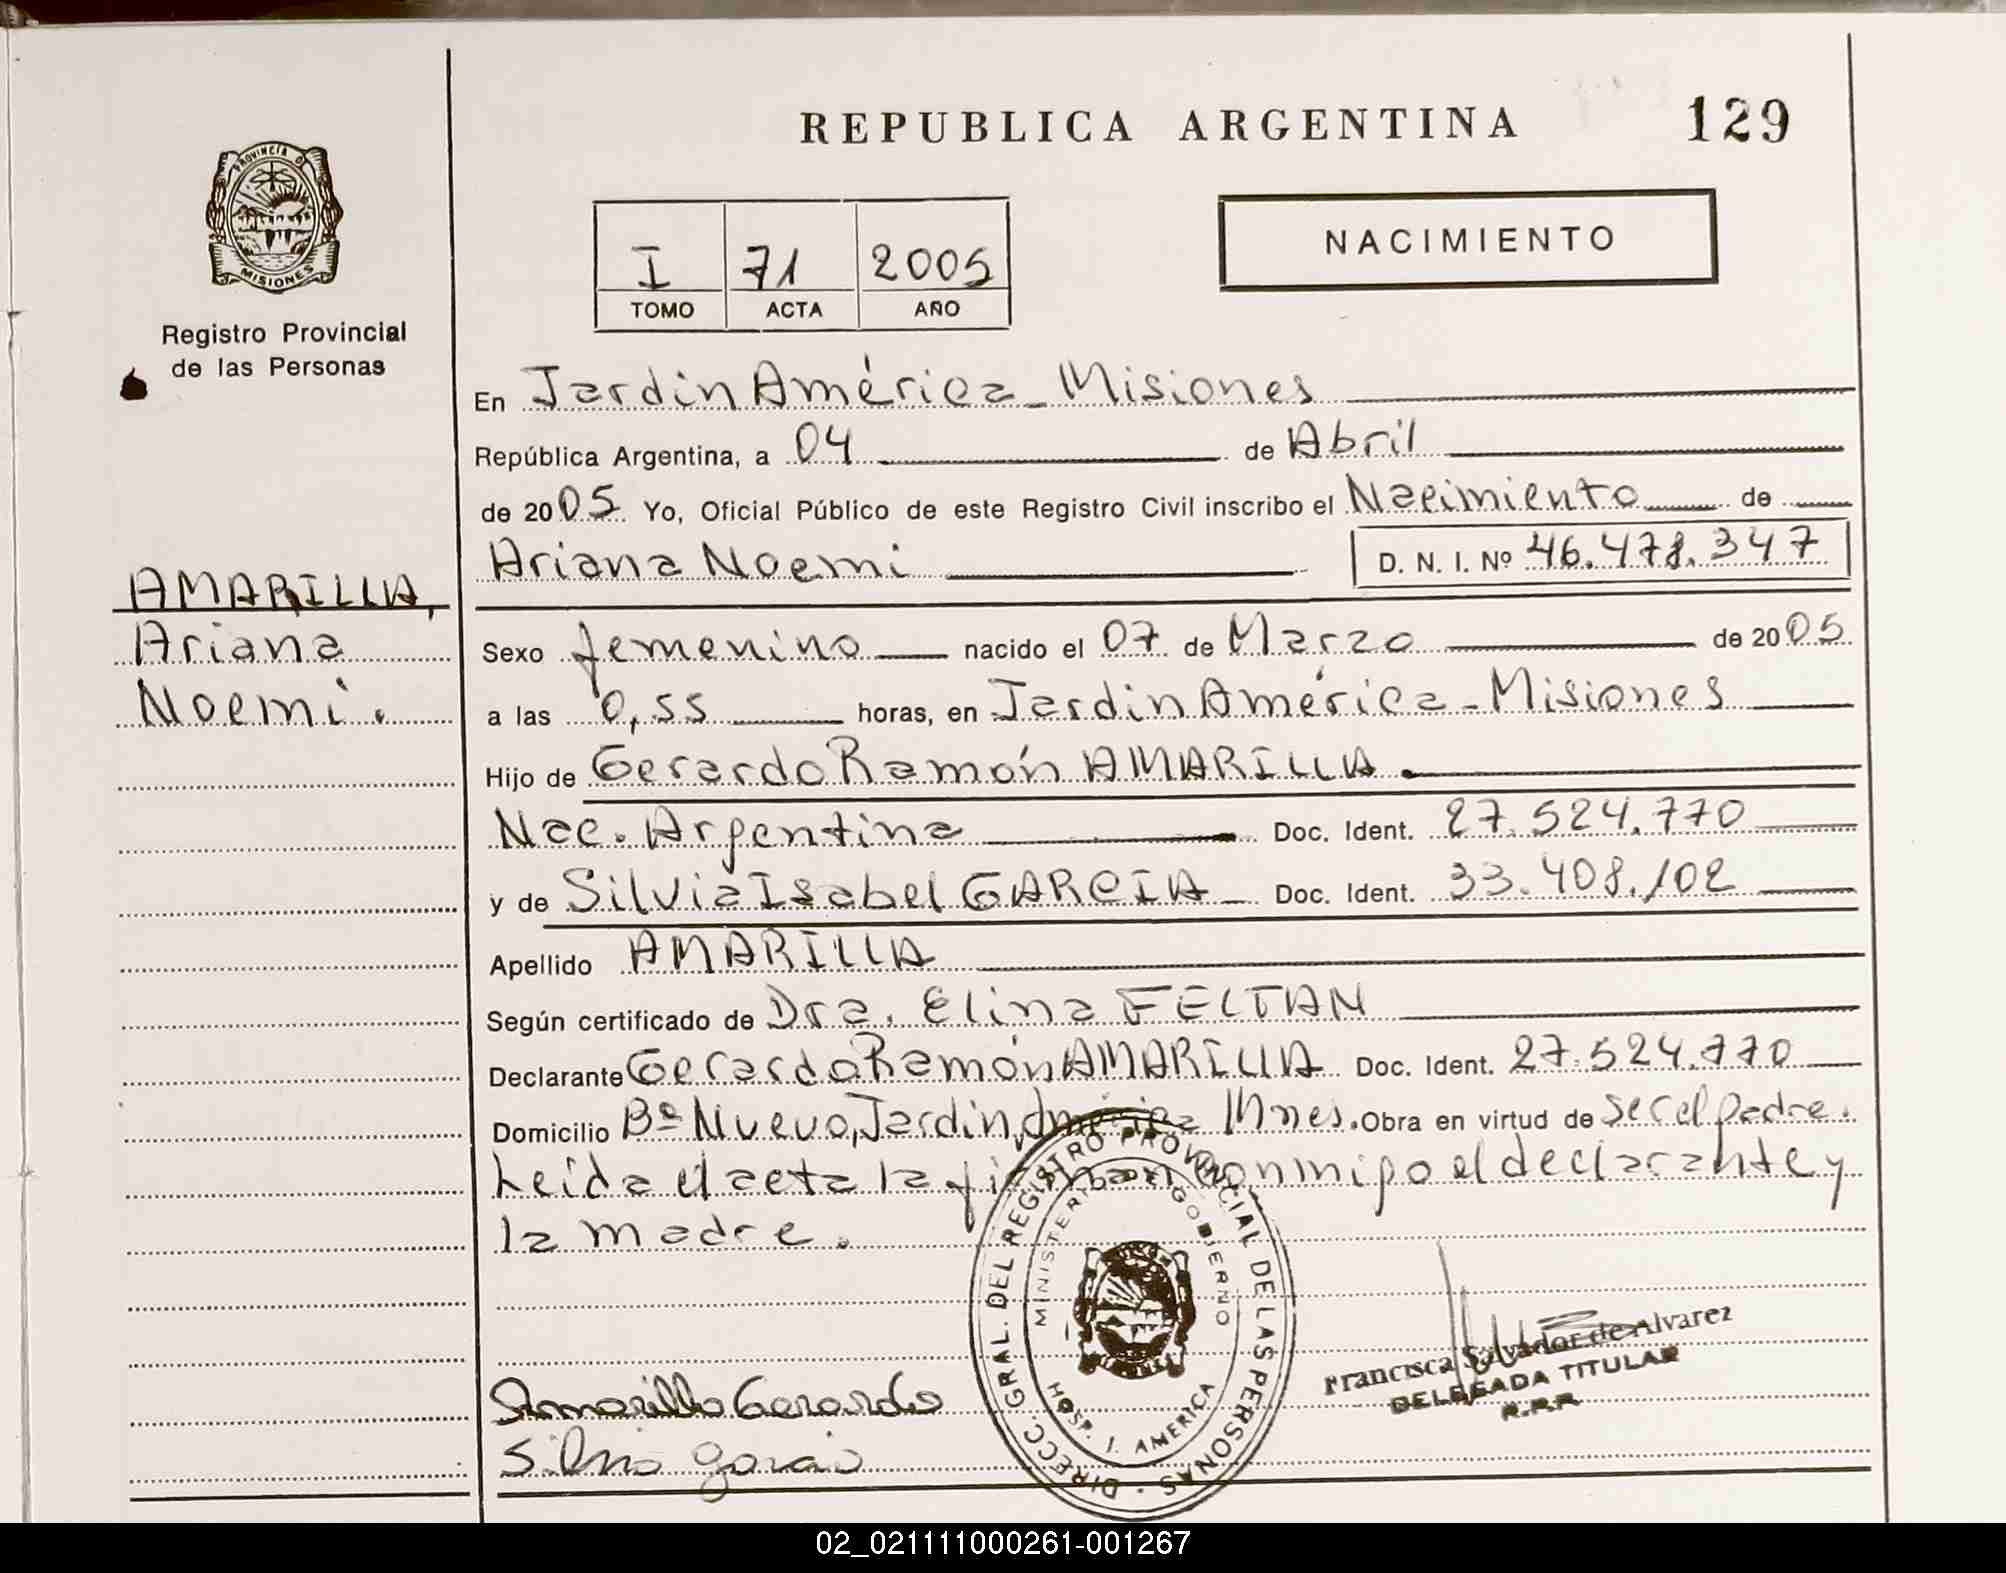 REPUBLICA ARGENTINA
129
PROVINCIA D
MISIONES
Registro Provincial
de las Personas
I 71 2005
TOMO ACTA AÑO
NACIMIENTO
En Jardin América - Misiones
República Argentina, a 04 de Abril
de 2005 Yo, Oficial Público de este Registro Civil inscribo el Nacimiento de
Ariana Noemi D. N. I. Nº 46.478.347
AMARILLA,
Ariana
Noemi.
Sexo femenino nacido el 07 de Marzo de 2005
a las 0,55 horas, en Jardin América - Misiones
Hijo de Gerardo Ramón AMARILLA.
Nac. Argentina Doc. Ident. 27.524.770
y de Silvia Isabel GARCIA Doc. Ident. 33.408.102
Apellido AMARILLA
Según certificado de Dra. Elina FELTAN
Declarante Gerardo Ramón AMARILLA Doc. Ident. 27.524.770
Domicilio Bº Nuevo, Jardin América Mnes. Obra en virtud de ser el padre.
Leida el acta la firman conmigo el declarante y
la madre.
DIRECC. GRAL. DEL REGISTRO PROVINCIAL DE LAS PERSONAS
MINISTERIO DE GOBIERNO
HOSP. J. AMERICA
Francisca Salvador de Alvarez
DELEGADA TITULAR
R.P.P.
Amarilla Gerardo
Silvia garcia
02_021111000261-001267